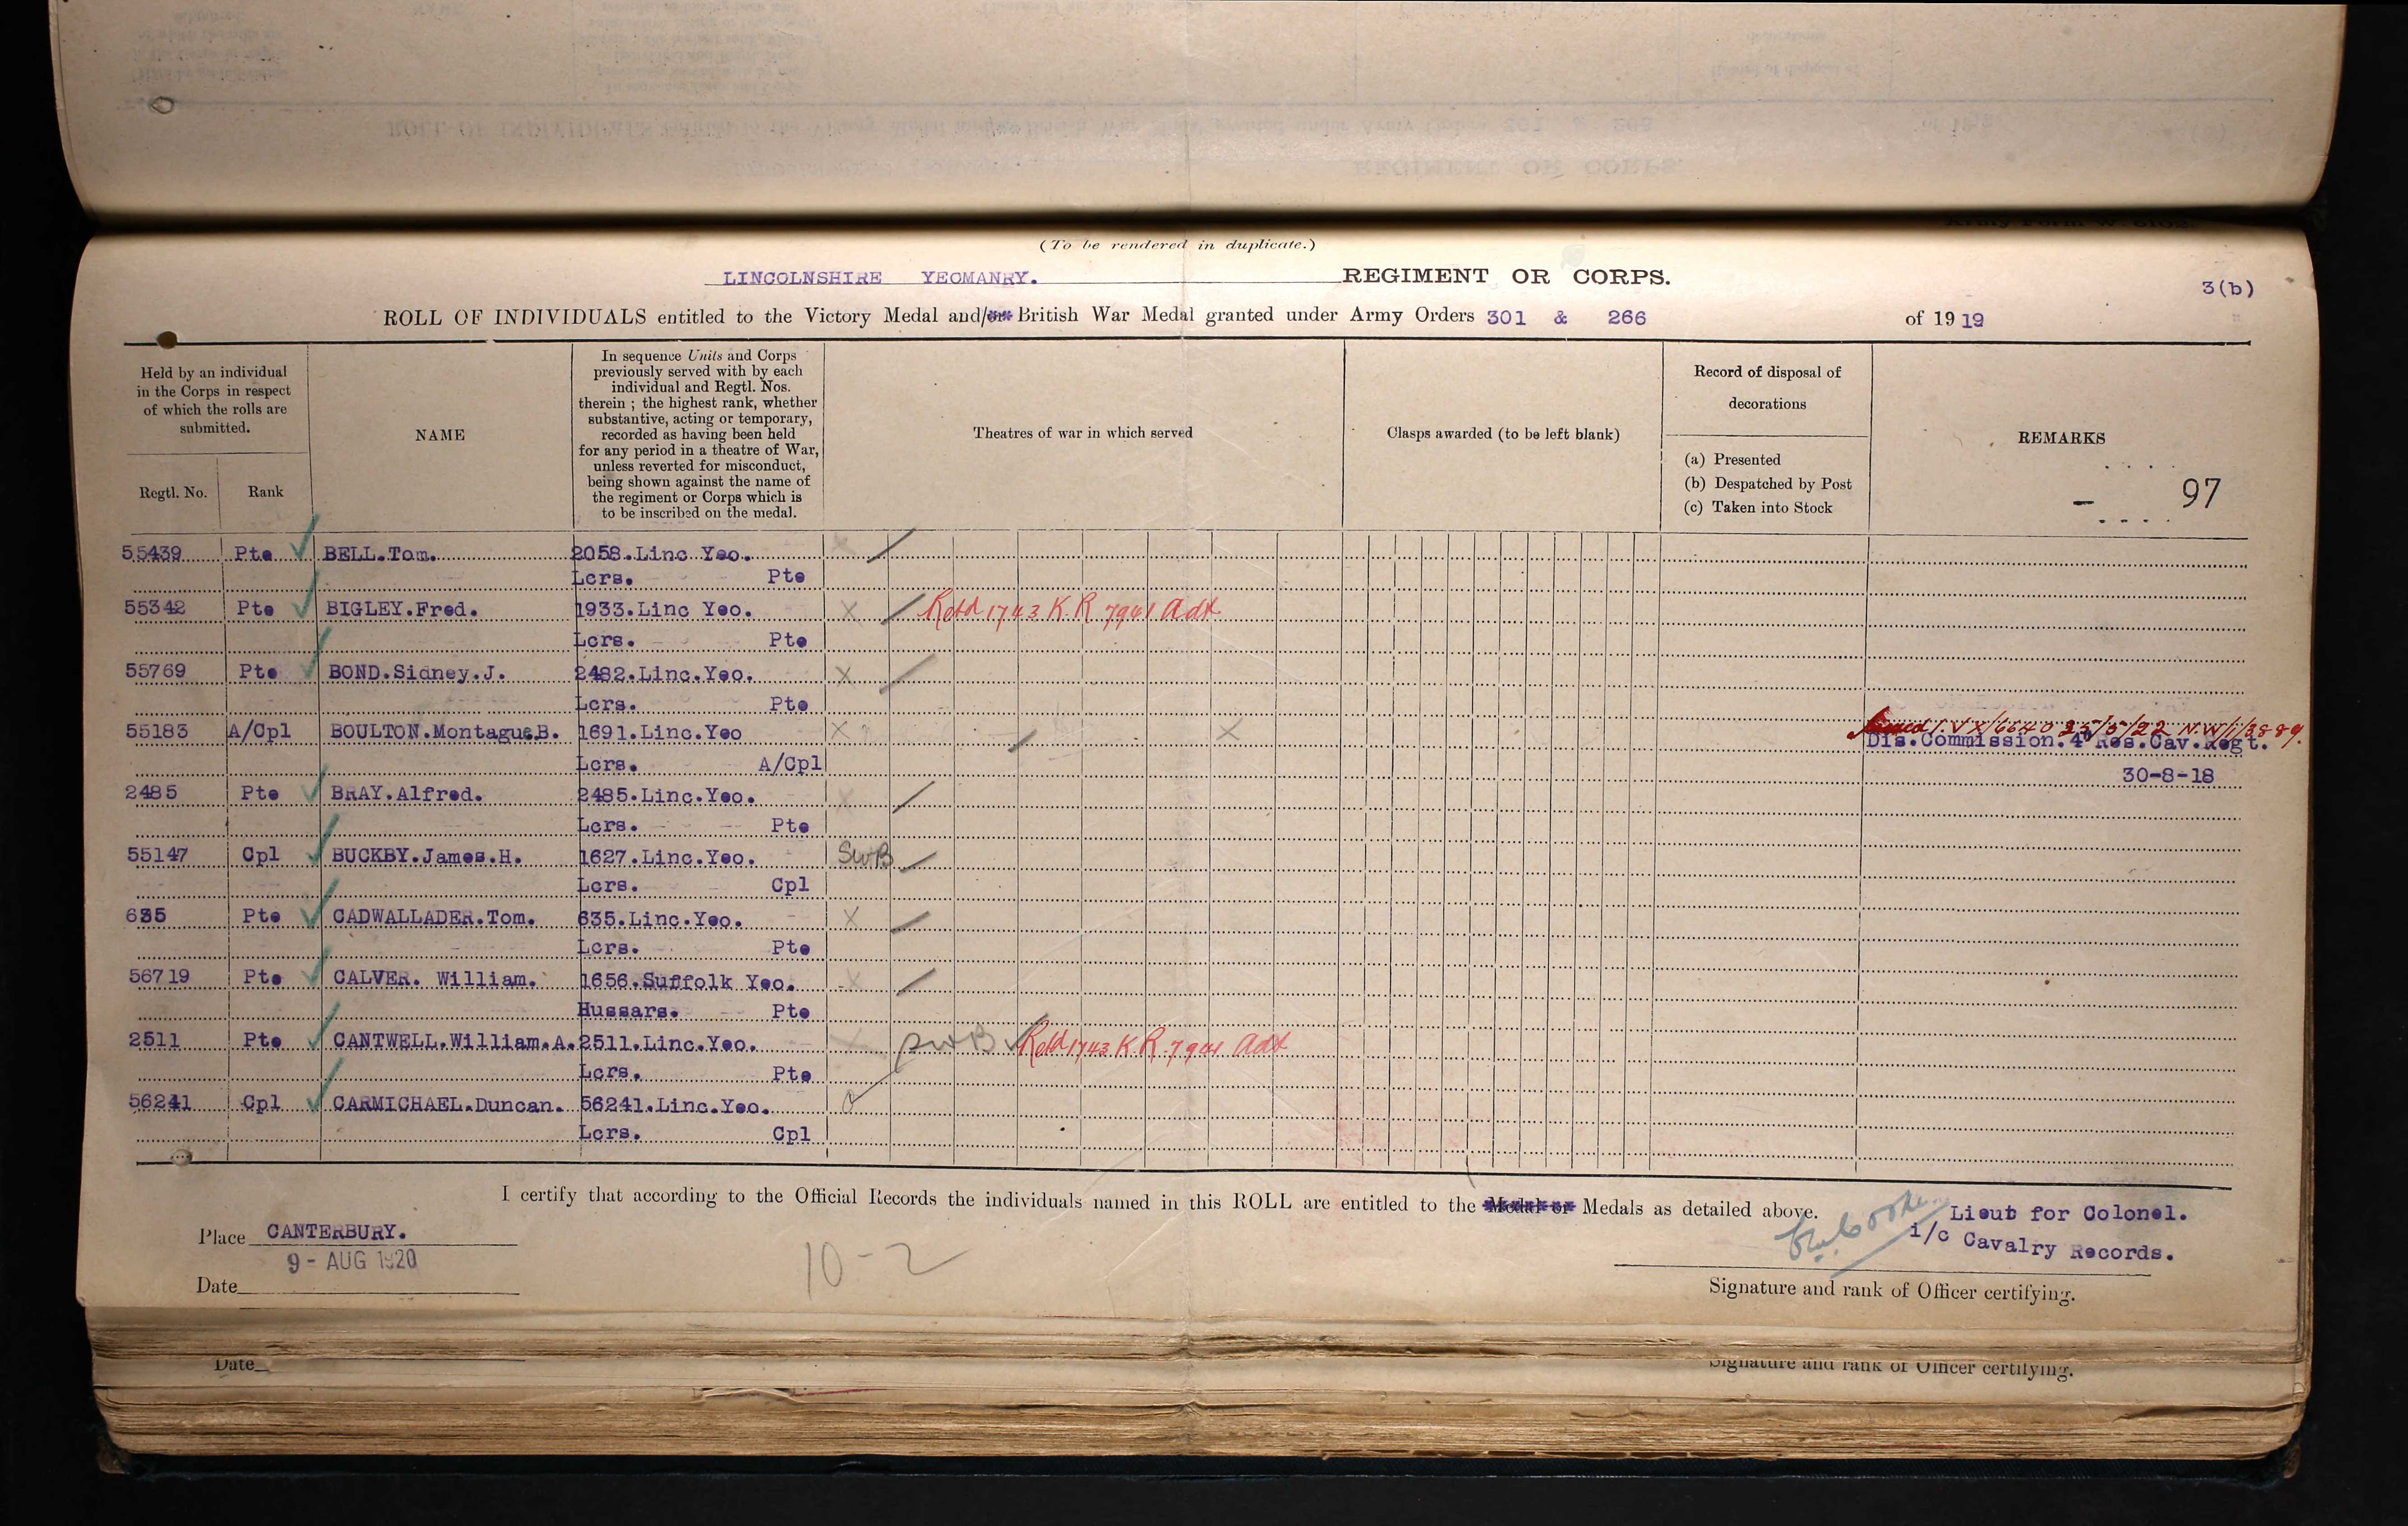 (To be rendered in duplicate.)
LINCOLNSHIRE YEOMANRY. REGIMENT OR CORPS.
3(b)
ROLL OF INDIVIDUALS entitled to the Victory Medal and/or British War Medal granted under Army Orders 301 & 266 of 1919
Held by an individual
in the Corps in respect
of which the rolls are
submitted.
Regtl. No.
Rank
NAME
In sequence Units and Corps
previously served with by each
individual and Regtl. Nos.
therein ; the highest rank, whether
substantive, acting or temporary,
recorded as having been held
for any period in a theatre of War,
unless reverted for misconduct,
being shown against the name of
the regiment or Corps which is
to be inscribed on the medal.
Theatres of war in which served
Clasps awarded (to be left blank)
Record of disposal of
decorations
(a) Presented
(b) Despatched by Post
(c) Taken into Stock
REMARKS
97
55439 Pte BELL.Tom. 2058.Linc Yeo.
Lcrs. Pte
55342 Pte BIGLEY.Fred. 1933.Linc Yeo. X Retd 1743 K.R 7941 Adt
Lcrs. Pte
55769 Pte BOND.Sidney.J. 2482.Linc.Yeo. X
Lcrs. Pte
55183 A/Cpl BOULTON.Montague.B. 1691.Linc.Yeo X X Issued 1.V X/6640 25/5/22 N.W/1/3889.
Lcrs. A/Cpl Dis.Commission.4 Res.Cav.Regt.
30-8-18
2485 Pte BRAY.Alfred. 2485.Linc.Yeo. X
Lcrs. Pte
55147 Cpl BUCKBY.James.H. 1627.Linc.Yeo. SWB
Lcrs. Cpl
635 Pte CADWALLADER.Tom. 635.Linc.Yeo. X
Lcrs. Pte
56719 Pte CALVER. William. 1656.Suffolk Yeo. X
Hussars. Pte
2511 Pte CANTWELL.William.A. 2511.Linc.Yeo. X SWB Retd 1743 K.R. 7941 Adt
Lcrs. Pte
56241 Cpl CARMICHAEL.Duncan. 56241.Linc.Yeo.
Lcrs. Cpl
I certify that according to the Official Records the individuals named in this ROLL are entitled to the Medal or Medals as detailed above.
Place CANTERBURY.
9 - AUG 1920
Date
10-2
Lieut for Colonel.
i/c Cavalry Records.
Signature and rank of Officer certifying.
Date
Signature and rank of Officer certifying.